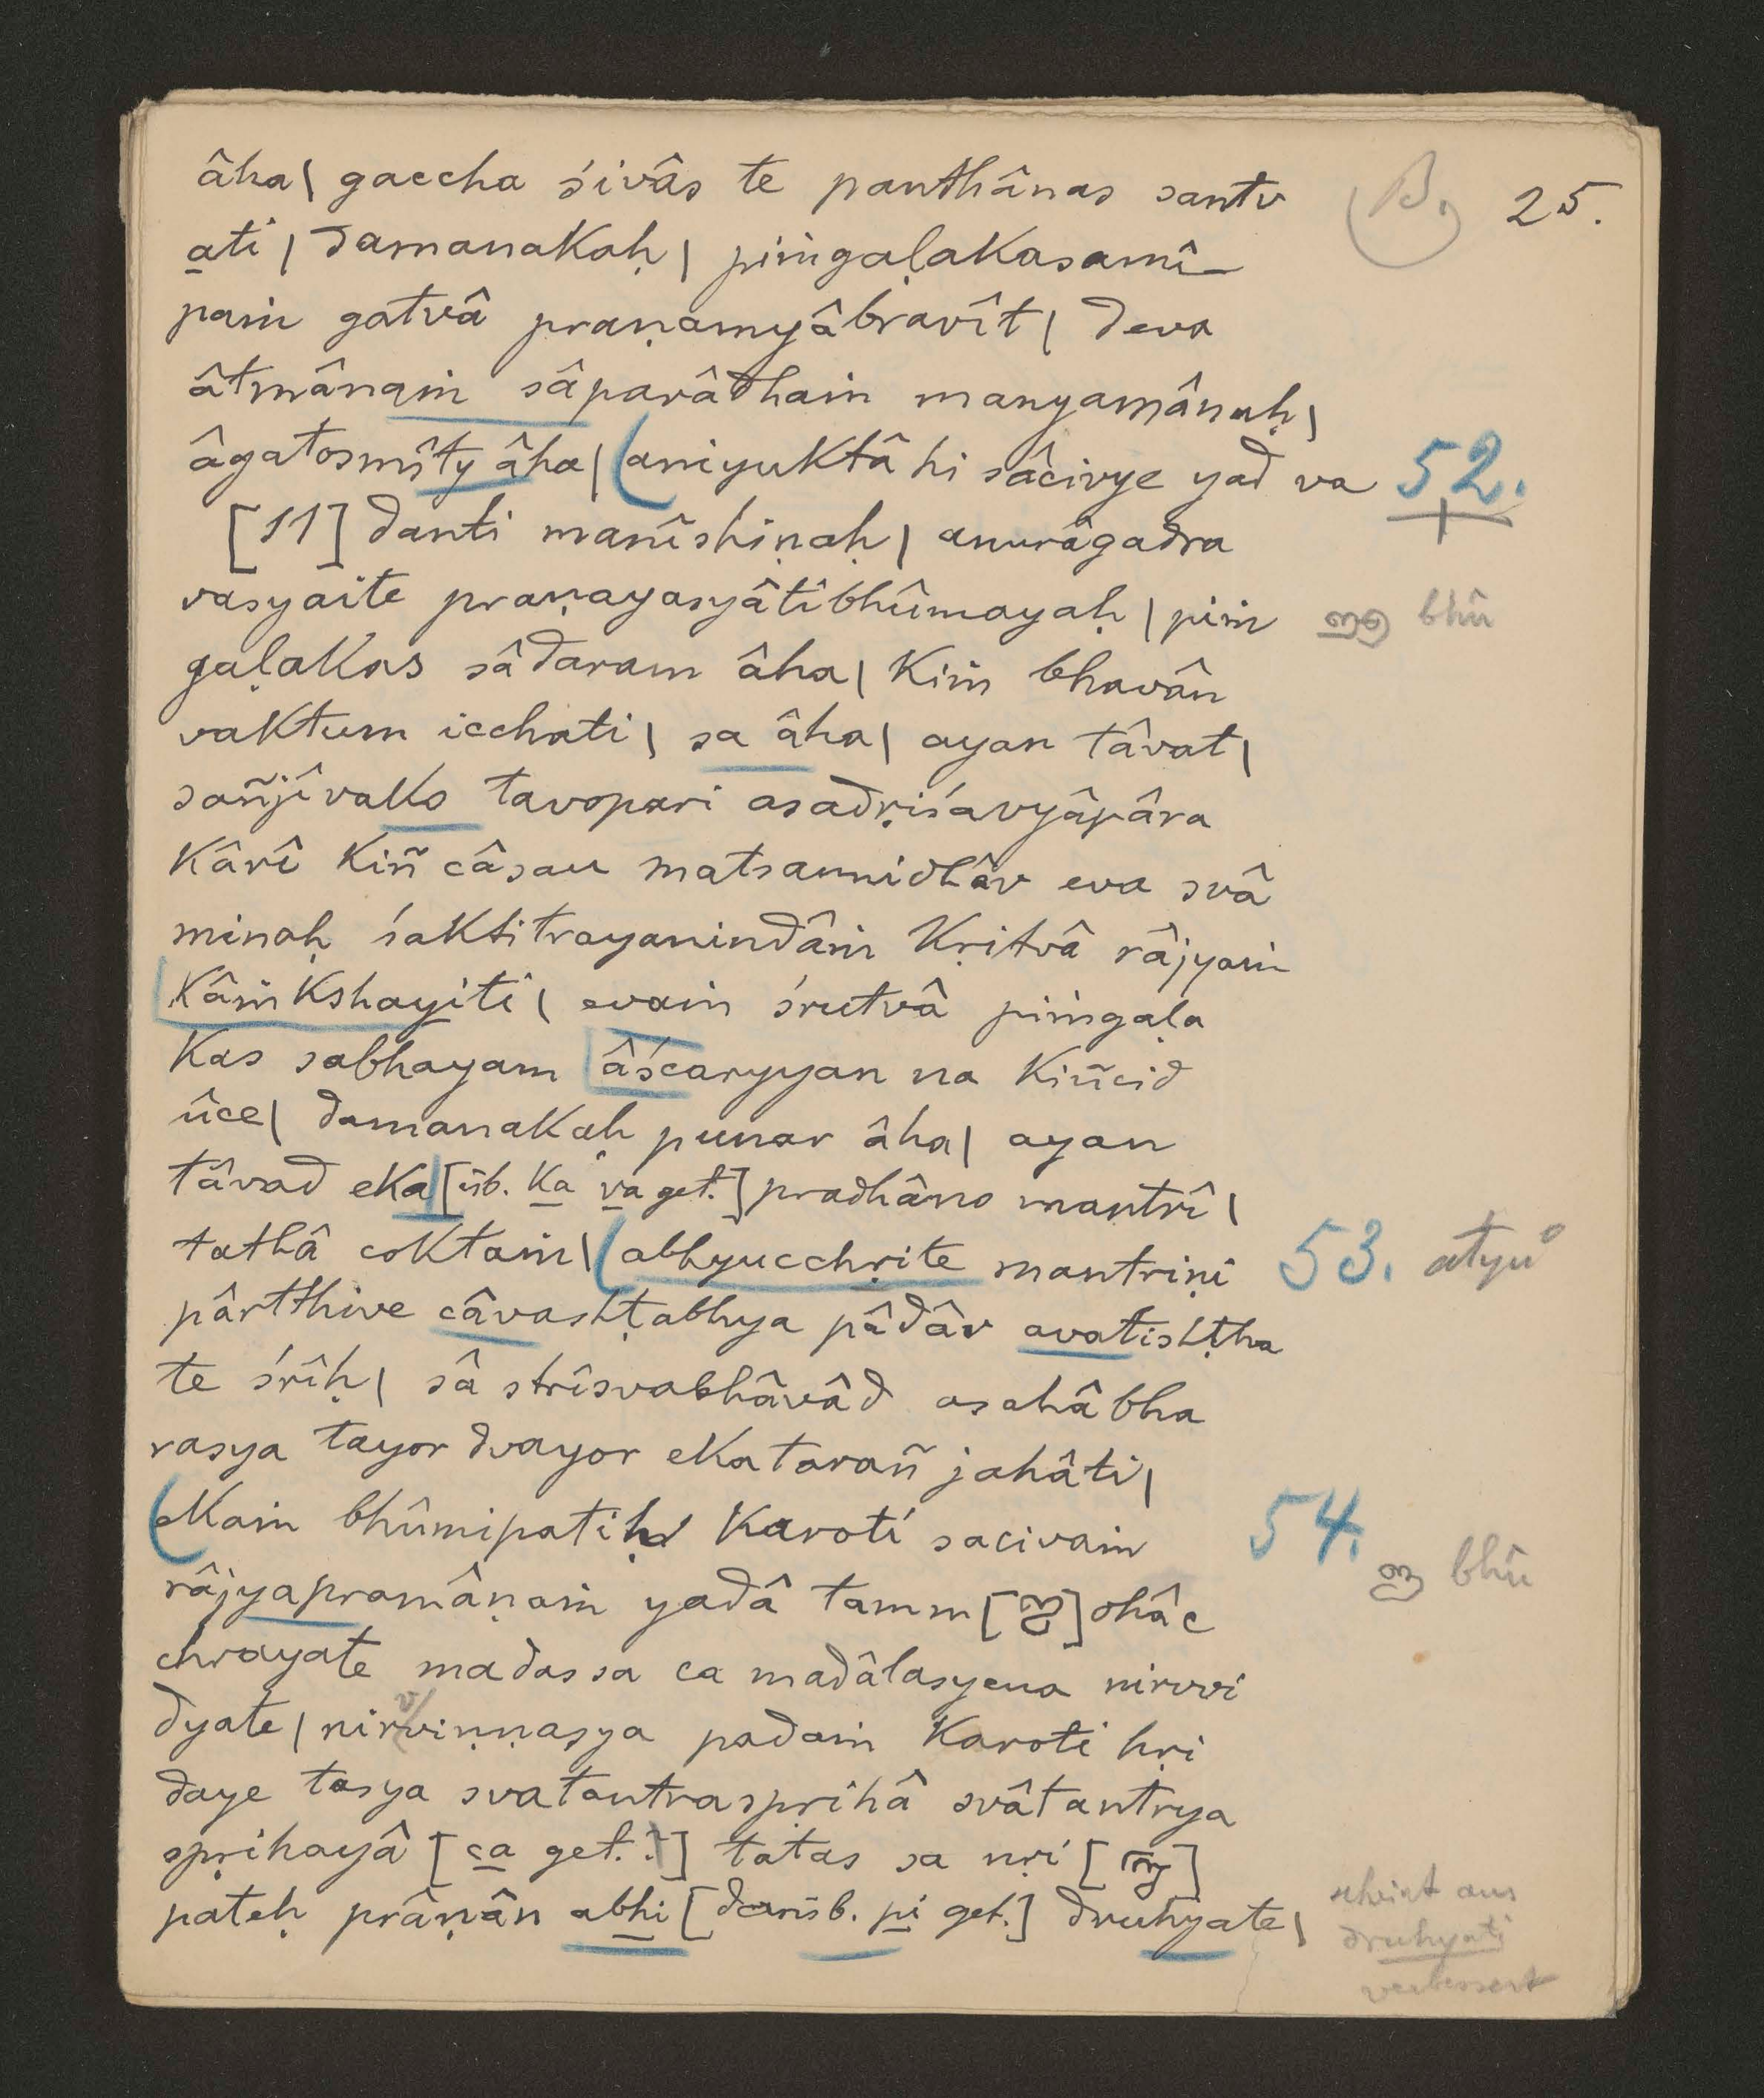 âha| gaccha śivâs te panthânas santv (B.) 25.
ati | damanakaḥ | piṁgaḷakasamî
paṁ gatvâ praṇamyâbravît | deva
âtmânaṁ sâparâdhaṁ manyamânaḥ |
âgatosmîty âha | (aniyuktâ hi sâcivye yad va 52.
[11] danti manîshiṇaḥ | anurâgadra
vasyaite praṇayasyâtibhûmayaḥ | piṁ bhû
gaḷakas sâdaram âha | kiṁ bhavân
vaktum icchati | sa âha | ayan tâvat |
sañjîvako tavopari asadṛiśavyâpâra
kârî kiñ câsau matsannidhâv eva svâ
minaḥ śaktitrayanindâṁ kṛitvâ râjyaṁ
kâṁkshayiti | evaṁ śrutvâ piṁgaḷa
kas sabhayam âścaryyan na kiñcid
ûce | damanakaḥ punar âha | ayan
tâvad eka [üb. ka va get.] pradhâno mantrî |
tathâ coktaṁ | (abhyucchṛite mantriṇi 53. atyu°
pârtthive câvashṭabhya pâdâv avatishṭha
te śrîḥ | sâ strîsvabhâvâd asahâ bha
rasya tayor dvayor ekatarañ jahâti |
(ekaṁ bhûmipatiḥ karoti sacivaṁ 54.
râjyapramâṇaṁ yadâ tamm [ ]ohâc bhû
chrayate madas sa ca madâlasyena nirvvi
dyate | nirvviṇṇasya padaṁ karoti hṛi
daye tasya svatantraspṛihâ svâtantrya
spṛihayâ [ca get.?] tatas sa nṛi [ ]
pateḥ prâṇân abhi [darüb. pi get.] druhyate |
scheint aus
druhyati
verbessert